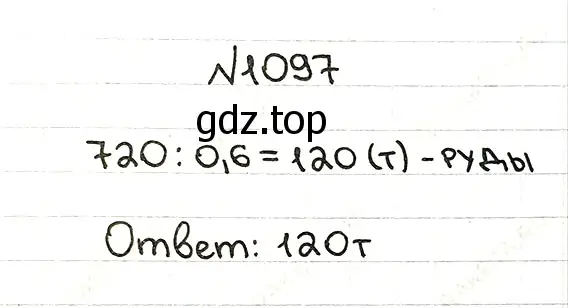 №1097
gdz.top
720 : 0,6 = 120 (т) - руды
Ответ: 120т